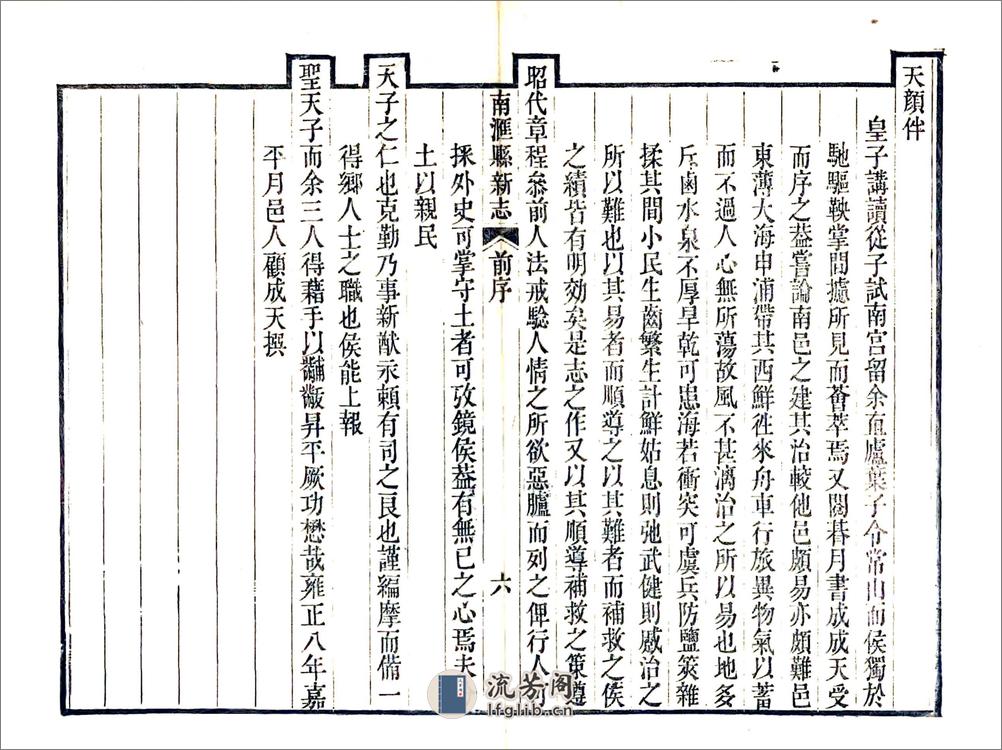 天顔伴
皇子講讀從子試南宮留余直廬葉子令常山而侯獨於
馳驅鞅掌間攄所見而薈萃焉又閱朞月書成成天受
而序之葢嘗論南邑之建其治較他邑頗易亦頗難邑
東薄大海申浦帶其西鮮徃來舟車行旅異物氣以蓄
而不過人心無所蕩故風不甚漓治之所以易也地多
斥鹵水泉不厚旱乾可患海若衝突可虞兵防鹽筴雜
揉其間小民生齒繁生計鮮姑息則弛武健則慼治之
所以難也以其易者而順導之以其難者而補救之侯
之績皆有明效矣是志之作又以其順導補救之策遵
昭代章程叅前人法戒騐人情之所欲惡臚而列之俾行人可
南滙縣新志 前序 六
採外史可掌守土者可攷鏡侯葢有無已之心焉夫
土以親民
天子之仁也克勤乃事新猷永賴有司之良也謹編摩而備一
得鄉人士之職也侯能上報
聖天子而余三人得藉手以黼黻昇平厥功懋哉雍正八年嘉
平月邑人顧成天撰
流芳閣
lfglib.cn